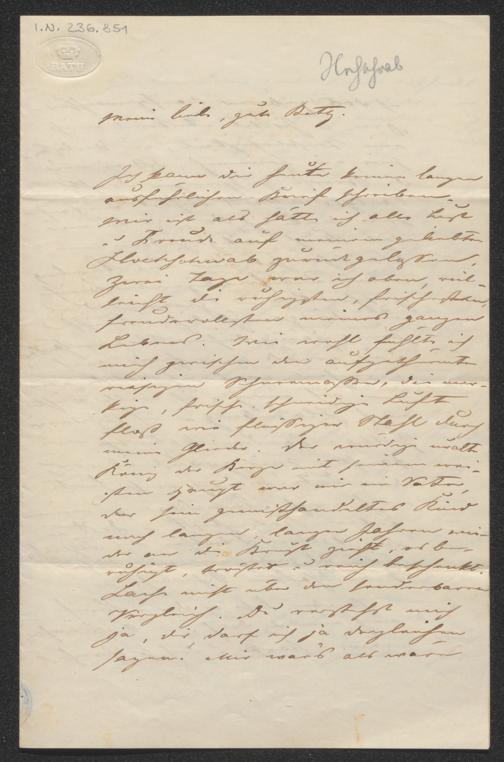 I.N. 236.851
BATH
Hochschwab
Meine liebe, gute Betty.
Ich kann dir heute keinen langen
ausführlichen Brief schreiben.
Mir ist als hätte ich alle Lust
u. Freude auf meinem geliebten
Hochschwab zurückgelassen.
Zwei Tage war ich oben, viel-
leicht die ruhigsten,
freudevollsten meines ganzen
Lebens. Wie wohl fühlte ich
mich zwischen den aufgethürmten
riesigen Schneemassen, die
frische, schneidige Luft
floß wie flüssiger Stahl durch
meine Glieder. Der uralte
König der Berge mit seinem
Haupt war mir ein Vater,
der sein gemißhandeltes Kind
nach langen, langen Jahren wie-
der an die Brust
ruhigt, tröstet u. reich beschenkt.
Lach nicht über den sonderbaren
Vergleich. Du verstehst mich
ja, dir darf ich ja dergleichen
sagen. Mir war's als wäre